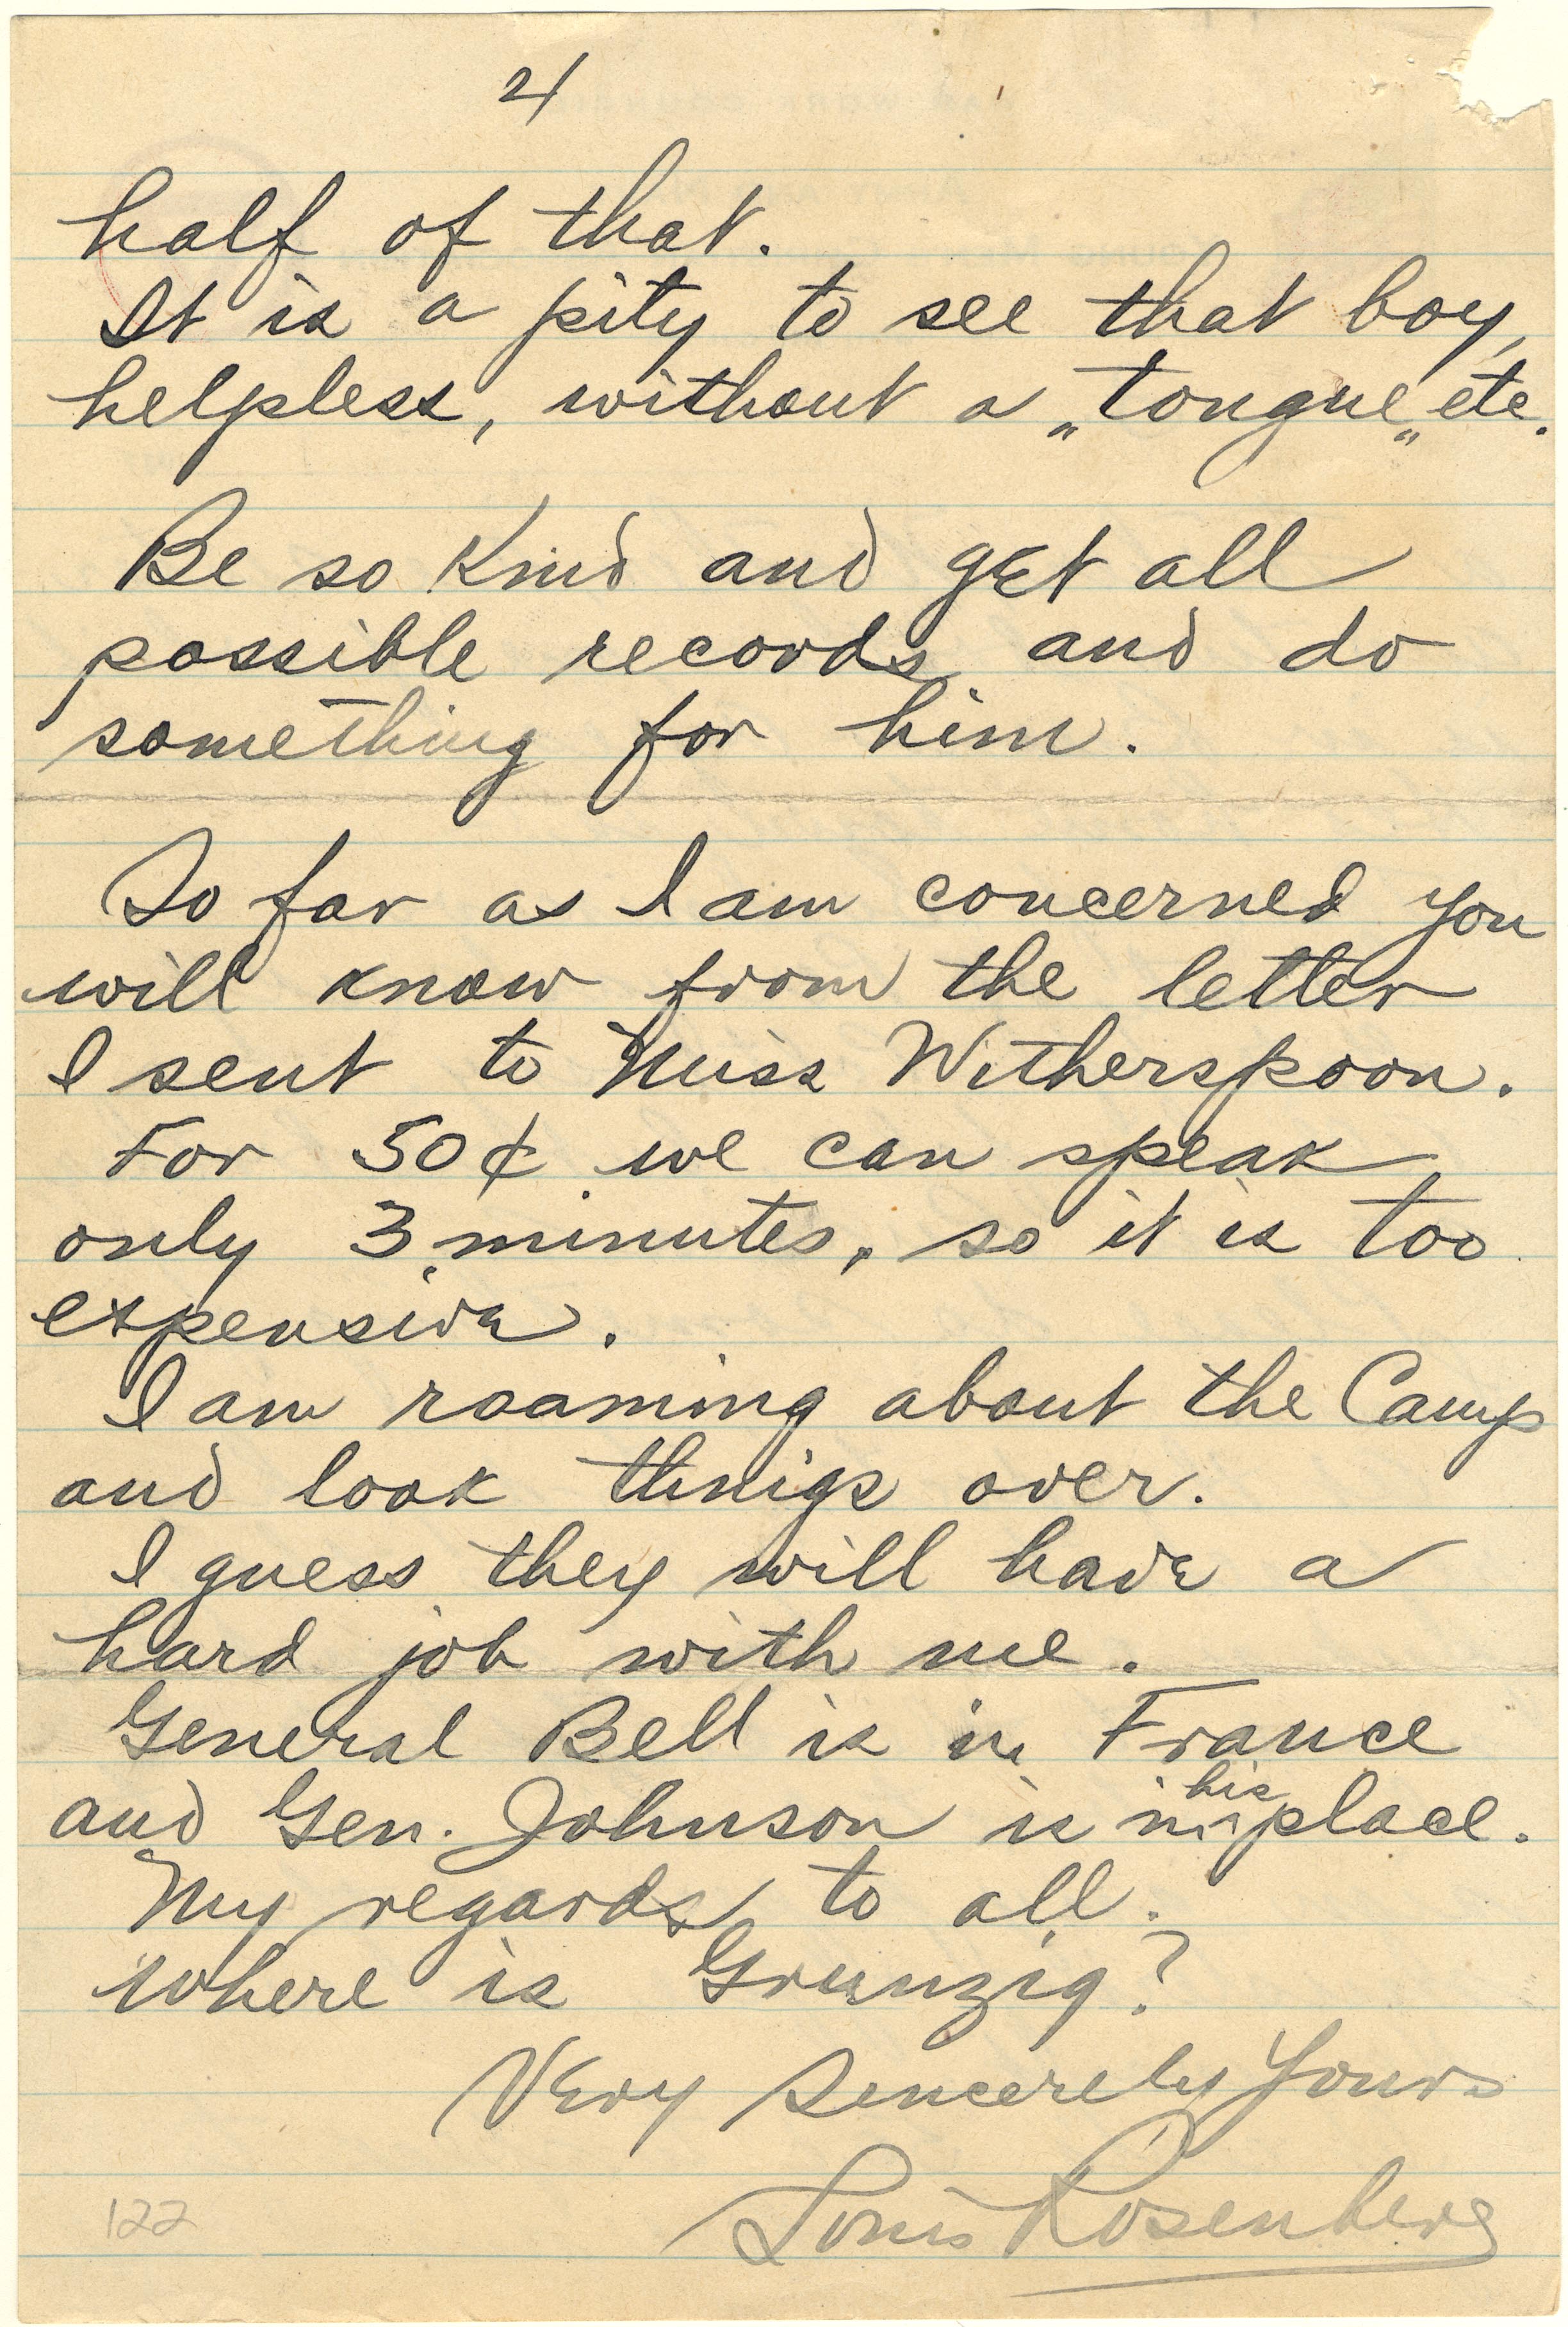 4
half of that.
It is a pity to see that boy,
helpless, without a „tongue„ etc.
Be so kind and get all
possible records and do
something for him.
So far as I am concerned you
will know from the letter
I sent to Miss Witherspoon.
For 50¢ we can speak
only 3 minutes, so it is too
expensive.
I am roaming about the Camp
and look things over.
I guess they will have a
hard job with me.
General Bell is in France
and Gen. Johnson is in his place.
My regards to all.
Where is Grunzig?
Very Sincerely Yours
Louis Rosenberg
122